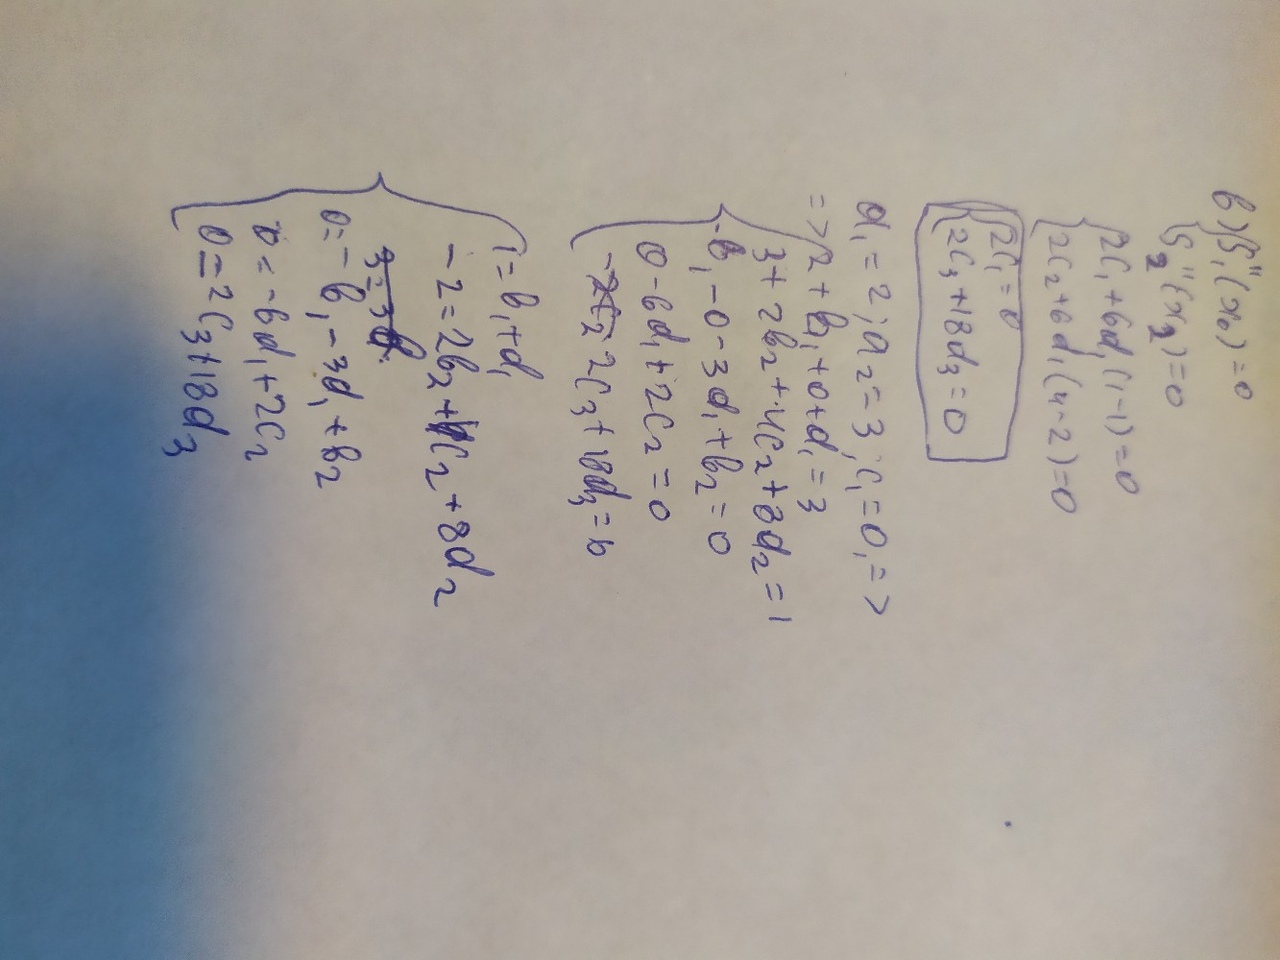 в) { S₁''(x₀)=0
S₂''(x₂)=0
{ 2c₁+6d₁(1-1)=0
2c₂+6d₁(4-2)=0
{ 2c₁=0
2c₃+18d₃=0
a₁=2; a₂=3; c₁=0, =>
=> { 2+b₁+0+d₁=3
3+2b₂+4c₂+8d₂=1
-b₁-0-3d₁+b₂=0
0-6d₁+2c₂=0
2c₃+18d₃=0
{ 1=b₁+d₁
-2=2b₂+4c₂+8d₂
0=-b₁-3d₁+b₂
0=-6d₁+2c₂
0=2c₃+18d₃